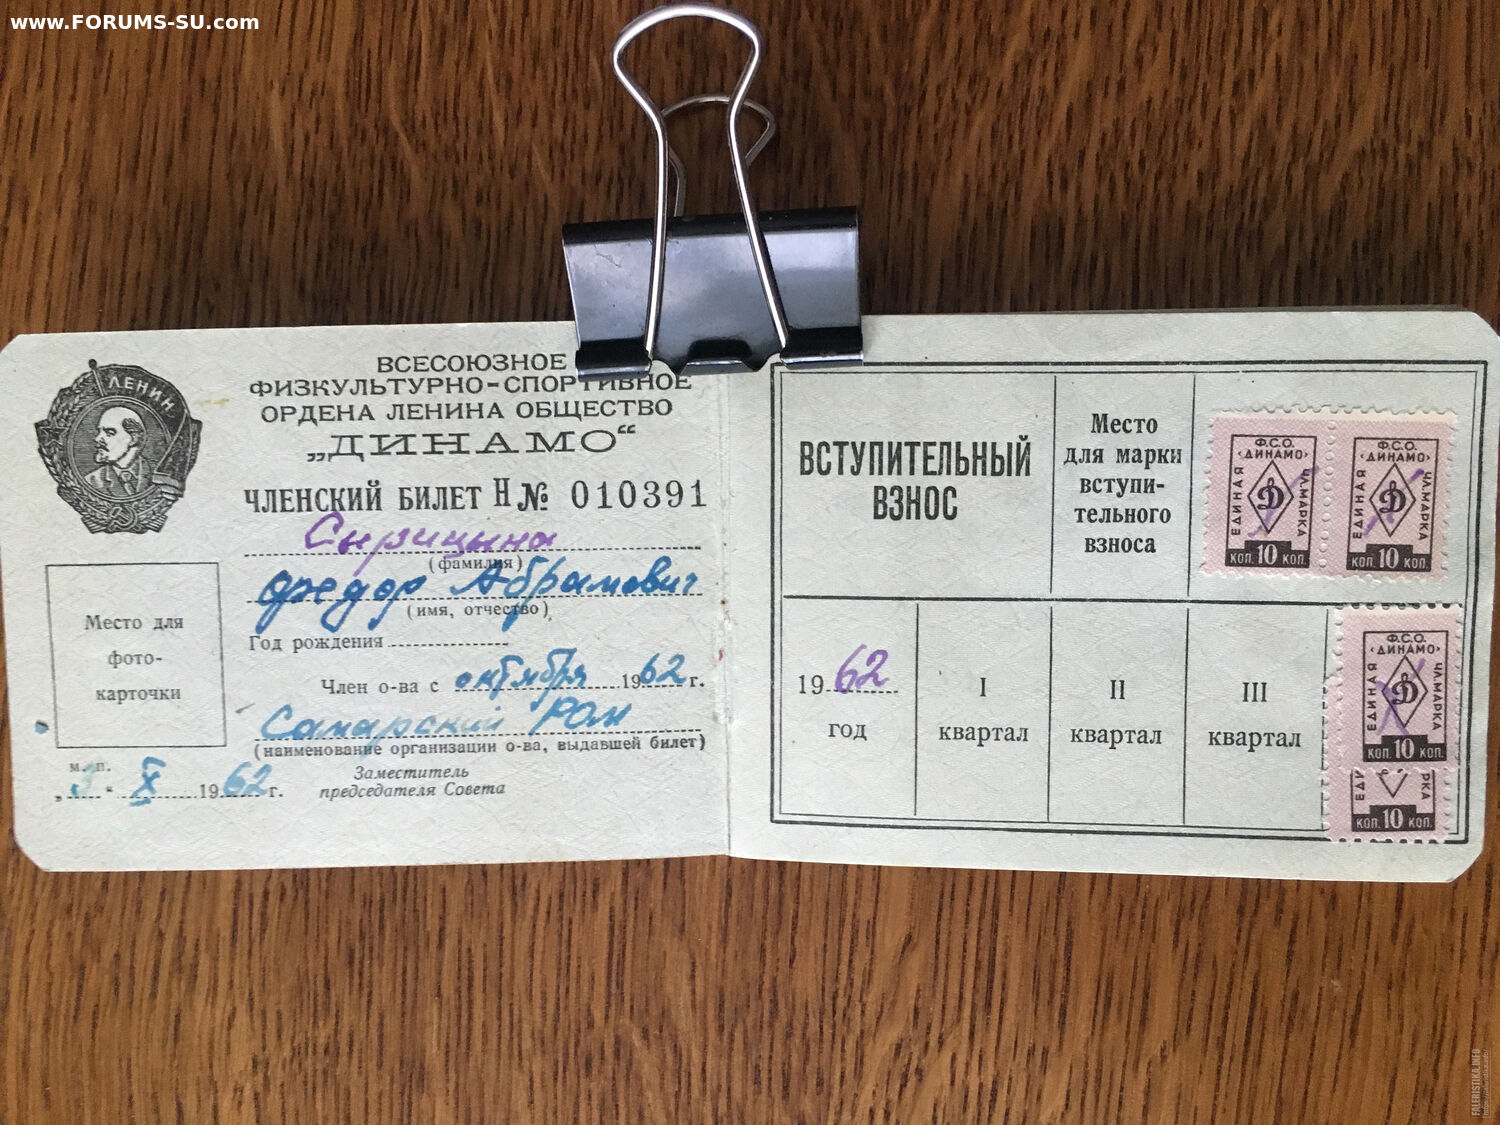 www.FORUMS-SU.com
ЛЕНИН
ВСЕСОЮЗНОЕ
ФИЗКУЛЬТУРНО-СПОРТИВНОЕ
ОРДЕНА ЛЕНИНА ОБЩЕСТВО
„ДИНАМО“
ЧЛЕНСКИЙ БИЛЕТ Н № 010391
Сырицына
(фамилия)
Федор Абрамович
(имя, отчество)
Год рождения
Член о-ва с октября 1962 г.
Самарский РОМ
(наименование организации о-ва, выдавшей билет)
Место для
фото-
карточки
м. п.
„3“ X 1962 г.
Заместитель
председателя Совета
ВСТУПИТЕЛЬНЫЙ
ВЗНОС
Место
для марки
вступи-
тельного
взноса
Ф.С.О.
‹ДИНАМО›
ЕДИНАЯ
Д
ЧЛ.МАРКА
КОП. 10 КОП.
Ф.С.О.
‹ДИНАМО›
ЕДИНАЯ
Д
ЧЛ.МАРКА
КОП. 10 КОП.
1962
год
I
квартал
II
квартал
III
квартал
Ф.С.О.
‹ДИНАМО›
ЕДИНАЯ
Д
ЧЛ.МАРКА
КОП. 10 КОП.
ЕДИ
РКА
КОП. 10 КОП.
FALERISTIKA.INFO